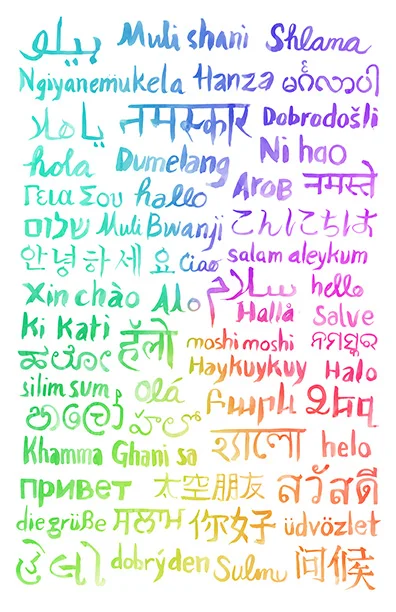 بيلو Muli shani Shlama
Ngiyanemukela Hanza မင်္ဂလာပါ
يا هلا नमस्कार Dobrodošli
hola Dumelang Ni hao
Γεια Σου hallo AroB नमस्ते
שלום Muli Bwanji こんにちは
안녕하세요 Ciao salam aleykum
Xin chào Alo سلام hello
Hallå Salve
Ki Kati हॅलो moshi moshi ନମସ୍କର
ಹಲೋ Haykuykuy Halo
silim sum Olá Բարև Ձեզ
හලෝ హలో
Khamma Ghani sa হ্যালো helo
привет 太空朋友 สวัสดี
die grüße ਸਲਾਮ 你好 üdvözlet
હેલો dobrý den Sulmu 问候